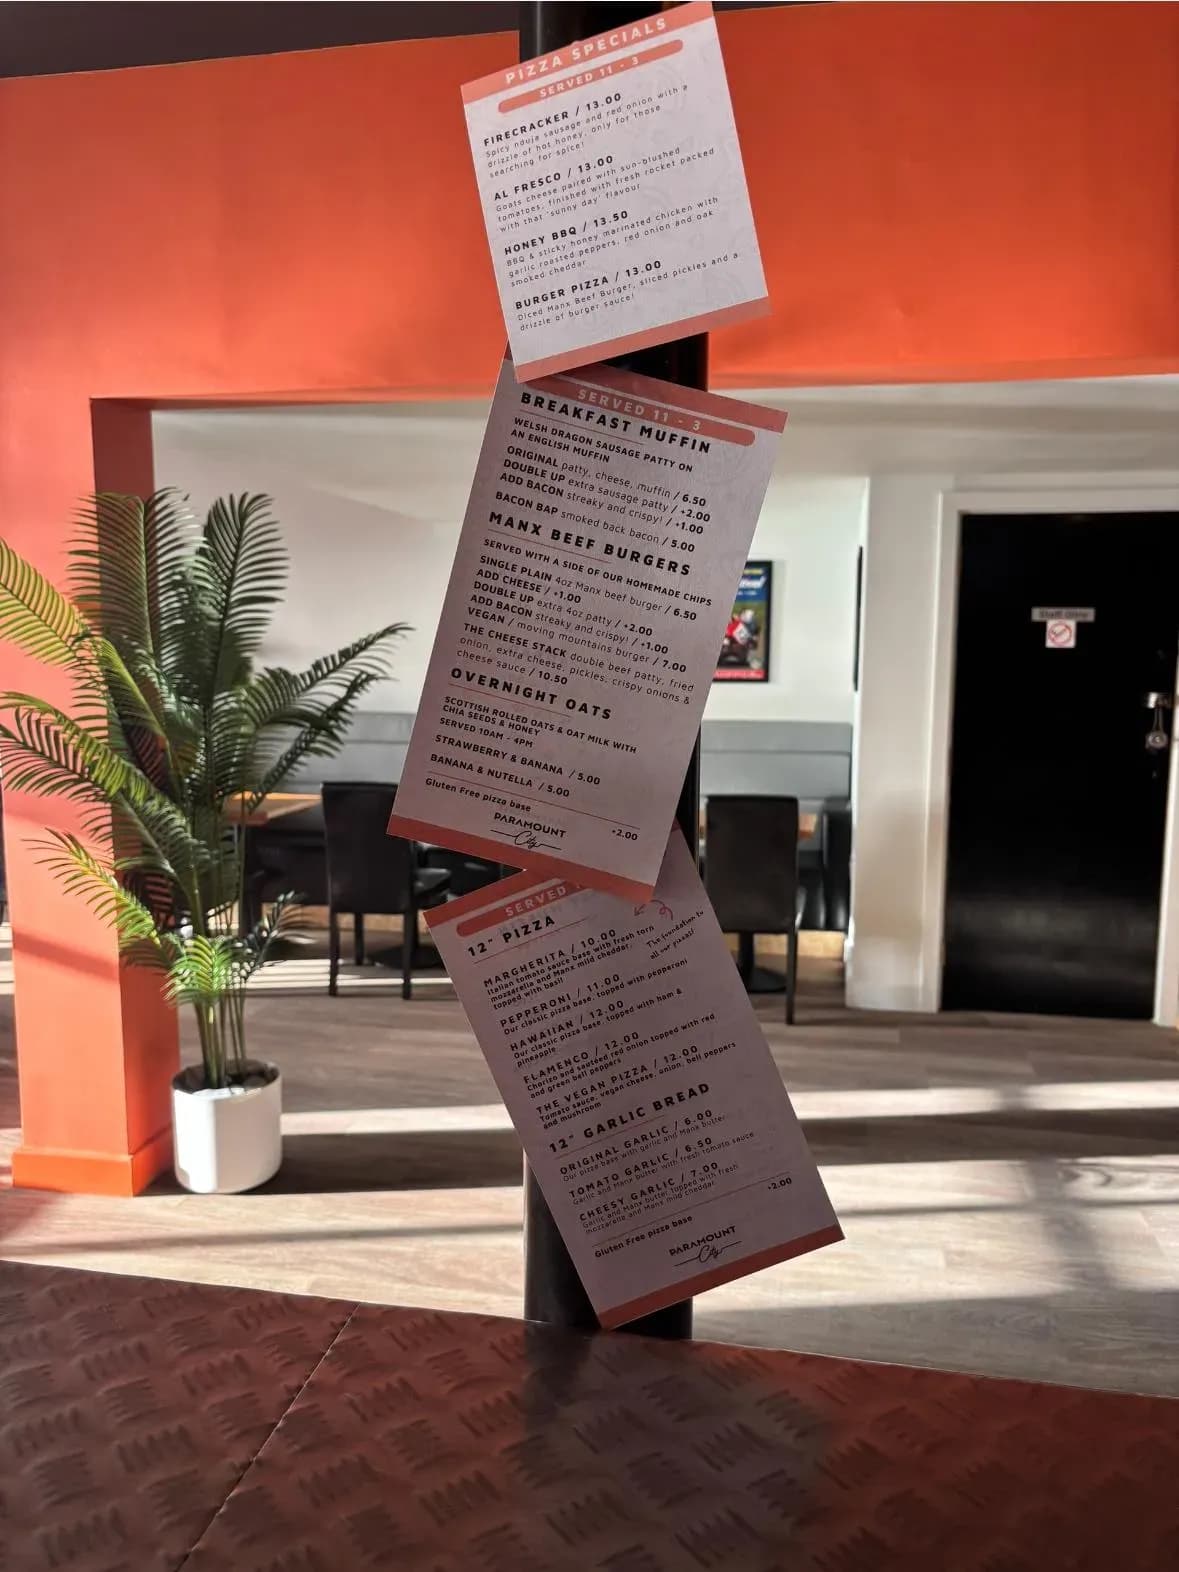 PIZZA SPECIALS
SERVED 11 - 3
FIRECRACKER / 13.00
Spicy nduja sausage and red onion with a
drizzle of hot honey, only for those
searching for spice!
AL FRESCO / 13.00
Goats cheese paired with sun-blushed
tomatoes, finished with fresh rocket packed
with that 'sunny day' flavour
HONEY BBQ / 13.50
BBQ & sticky honey marinated chicken with
garlic roasted peppers, red onion and oak
smoked cheddar
BURGER PIZZA / 13.00
Diced Manx Beef Burger, sliced pickles and a
drizzle of burger sauce!
SERVED 11 - 3
BREAKFAST MUFFIN
WELSH DRAGON SAUSAGE PATTY ON
AN ENGLISH MUFFIN
ORIGINAL patty, cheese, muffin / 6.50
DOUBLE UP extra sausage patty / +2.00
ADD BACON streaky and crispy! / +1.00
BACON BAP smoked back bacon / 5.00
MANX BEEF BURGERS
SERVED WITH A SIDE OF OUR HOMEMADE CHIPS
SINGLE PLAIN 4oz Manx beef burger / 6.50
ADD CHEESE / +1.00
DOUBLE UP extra 4oz patty / +2.00
ADD BACON streaky and crispy! / +1.00
VEGAN / moving mountains burger / 7.00
THE CHEESE STACK double beef patty, fried
onion, extra cheese, pickles, crispy onions &
cheese sauce / 10.50
OVERNIGHT OATS
SCOTTISH ROLLED OATS & OAT MILK WITH
CHIA SEEDS & HONEY
SERVED 10AM - 4PM
STRAWBERRY & BANANA / 5.00
BANANA & NUTELLA / 5.00
Gluten Free pizza base +2.00
PARAMOUNT
City
SERVED
12" PIZZA
The foundation to
all our pizzas!
MARGHERITA / 10.00
Italian tomato sauce base with fresh torn
mozzarella and Manx mild cheddar,
topped with basil
PEPPERONI / 11.00
Our classic pizza base, topped with pepperoni
HAWAIIAN / 12.00
Our classic pizza base, topped with ham &
pineapple
FLAMENCO / 12.00
Chorizo and sautéed red onion topped with red
and green bell peppers
THE VEGAN PIZZA / 12.00
Tomato sauce, vegan cheese, onion, bell peppers
and mushroom
12" GARLIC BREAD
ORIGINAL GARLIC / 6.00
Our pizza base with garlic and Manx butter
TOMATO GARLIC / 6.50
Garlic and Manx butter with fresh tomato sauce
CHEESY GARLIC / 7.00
Garlic and Manx butter topped with fresh
mozzarella and Manx mild cheddar
Gluten Free pizza base +2.00
PARAMOUNT
City
Staff Only